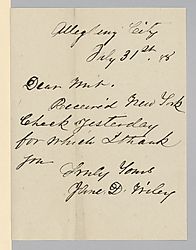 Allegheny City
July 31st. 88
Dear Mr.
Received New York
Check Yesterday
for which I thank
you
Truly Yours
Jane D.